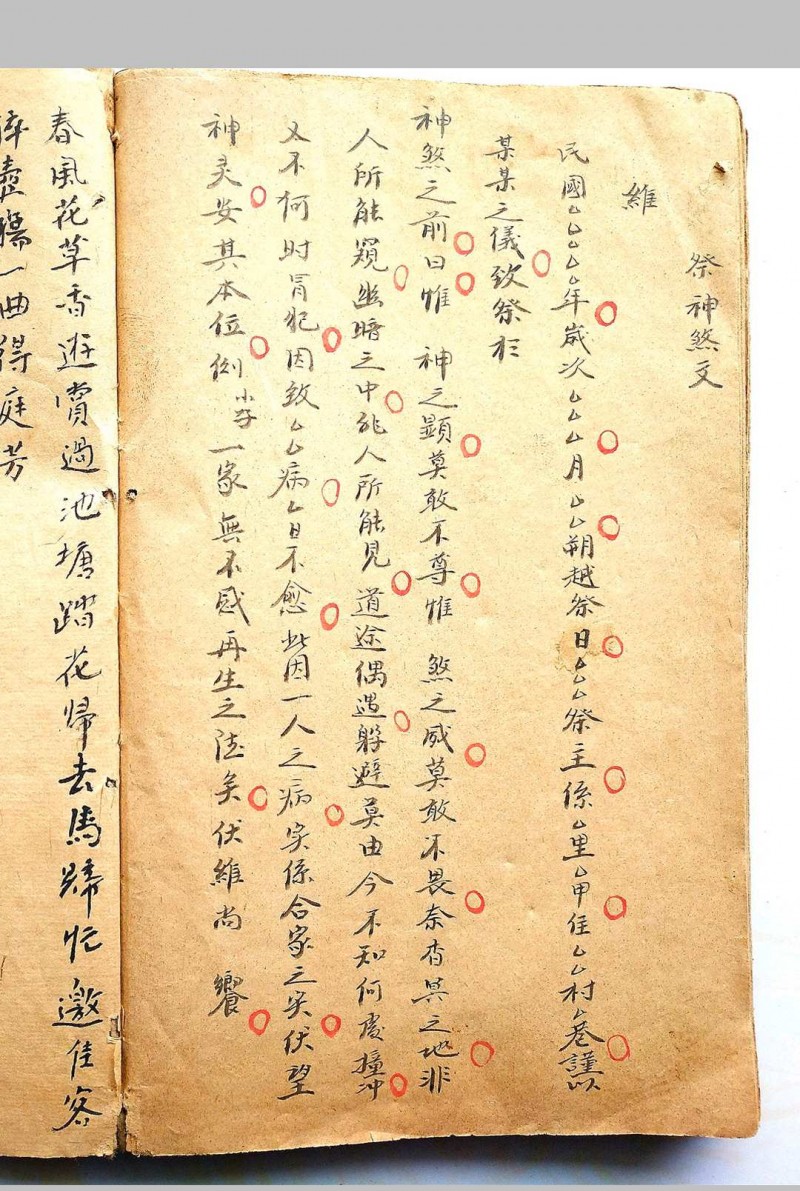 祭神煞文
維
民國厶厶厶厶年歲次厶厶厶月厶厶朔越祭日厶厶厶祭主係厶里厶甲住厶厶村厶巷謹以
某某之儀致祭扵
神煞之前曰惟 神之顯莫敢不尊惟 煞之威莫敢不畏奈杳冥之地非
人所能窺幽暗之中非人所能見道途偶遇躲避莫由今不知何處撞冲
又不何時冐犯因致厶厶病厶日不愈此因一人之病实係合家之灾伏望
神灵安其本位 一家無不感再生之德矣伏維尚 饗
春風花草香遊賞過池塘踏花歸去馬蹄忙邀佳客
壺觴一曲得庭芳